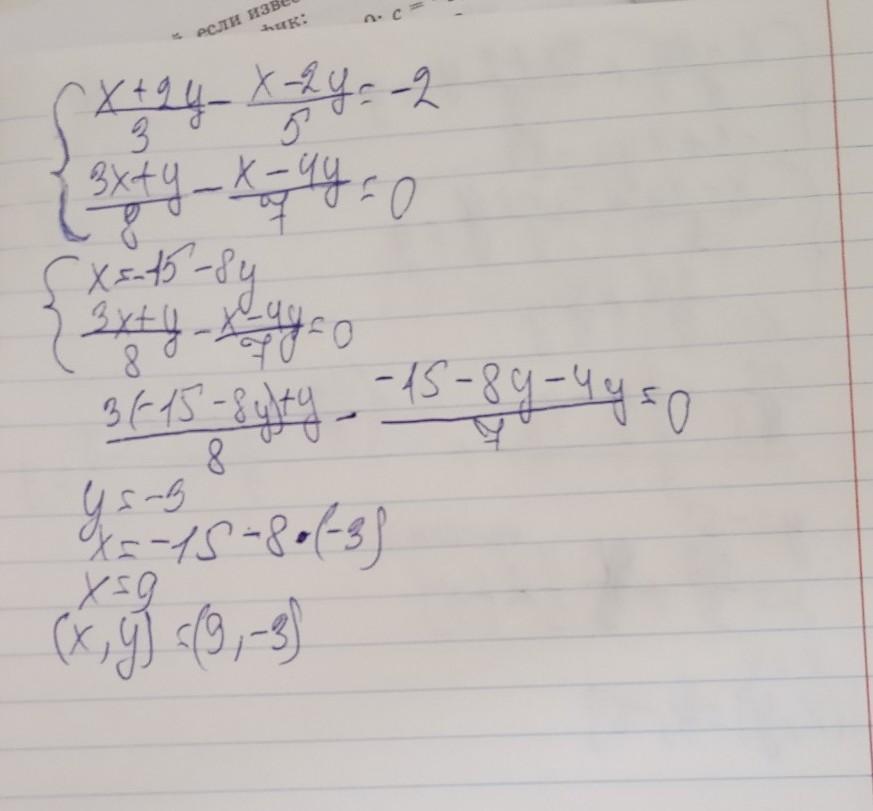 если извес
фик:
с =
{ (x+2y)/3 - (x-2y)/5 = -2
(3x+y)/8 - (x-4y)/7 = 0
{ x=-15-8y
(3x+y)/8 - (x-4y)/7 = 0
(3(-15-8y)+y)/8 - (-15-8y-4y)/7 = 0
y=-3
x=-15-8•(-3)
x=9
(x,y)=(9,-3)